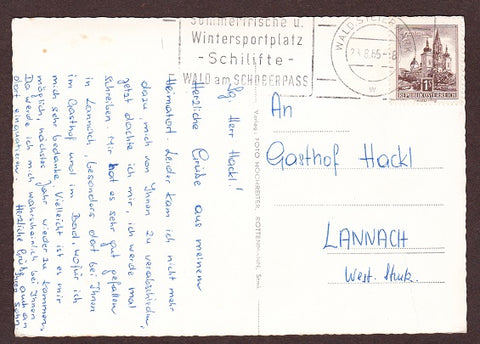 Sommerfrische u.
Wintersportplatz
- Schilifte -
WALD am SCHOBERPASS
WALD, STEIERMARK
REPUBLIK ÖSTERREICH
An
Gasthof Hackl
LANNACH
West. Stmk.
Verlag: FOTO HOCHREITER, ROTTENMANN, Stmk.
Sg. Herr Hackl!
Herzliche Grüße aus meinem
Heimatort. Leider kam ich nicht mehr
dazu, mich von Ihnen zu verabschieden,
jetzt dachte ich mir, ich werde mal
schreiben. Mir hat es sehr gut gefallen
in Lannach, besonders dort bei Ihnen
im Gasthof und im Bad, wofür ich
mich sehr bedanke. Vielleicht ist es mir
möglich, nächstes Jahr wieder zu kommen,
Da werde ich mich wahrscheinlich bei Ihnen
dort einquatieren. Herzliche Grüße auch an
Ihren Sohn